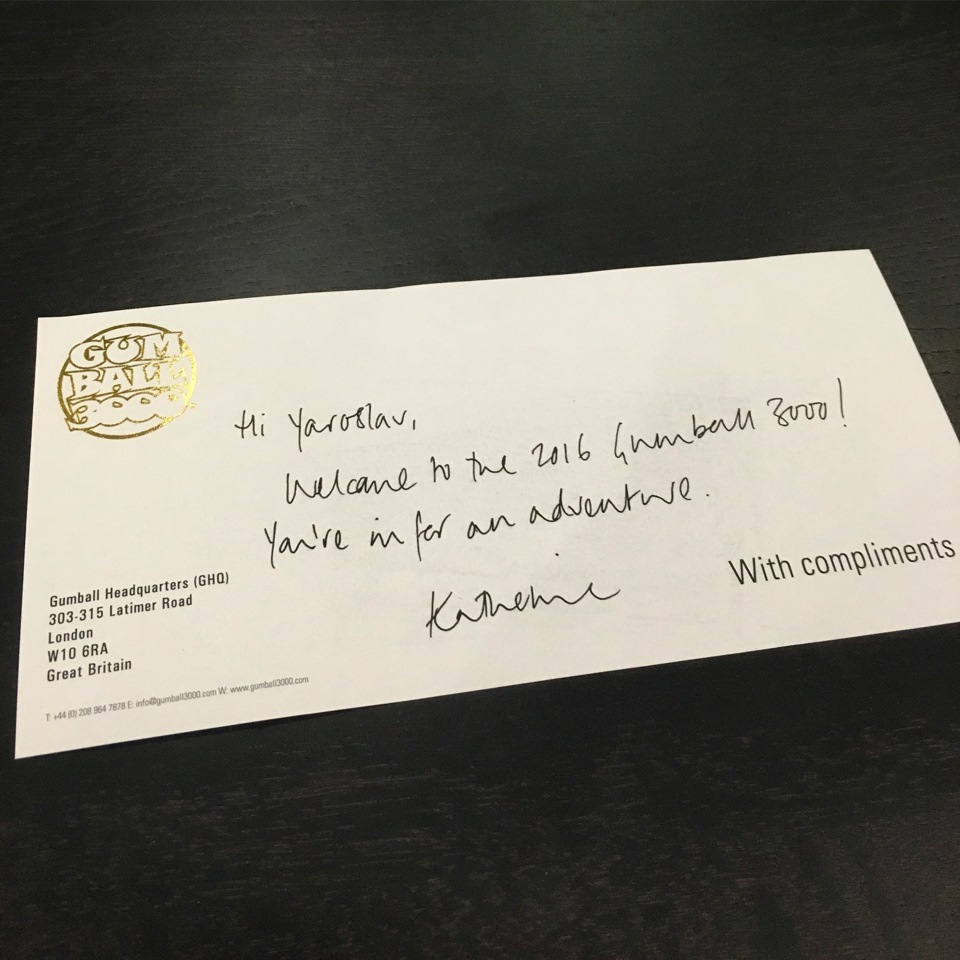 GUM
BALL
3000
Hi Yaroslav,
Welcome to the 2016 Gumball 3000!
You're in for an adventure.
Katherine
With compliments
Gumball Headquarters (GHQ)
303-315 Latimer Road
London
W10 6RA
Great Britain
T: +44 (0) 208 964 7878 E: info@gumball3000.com W: www.gumball3000.com